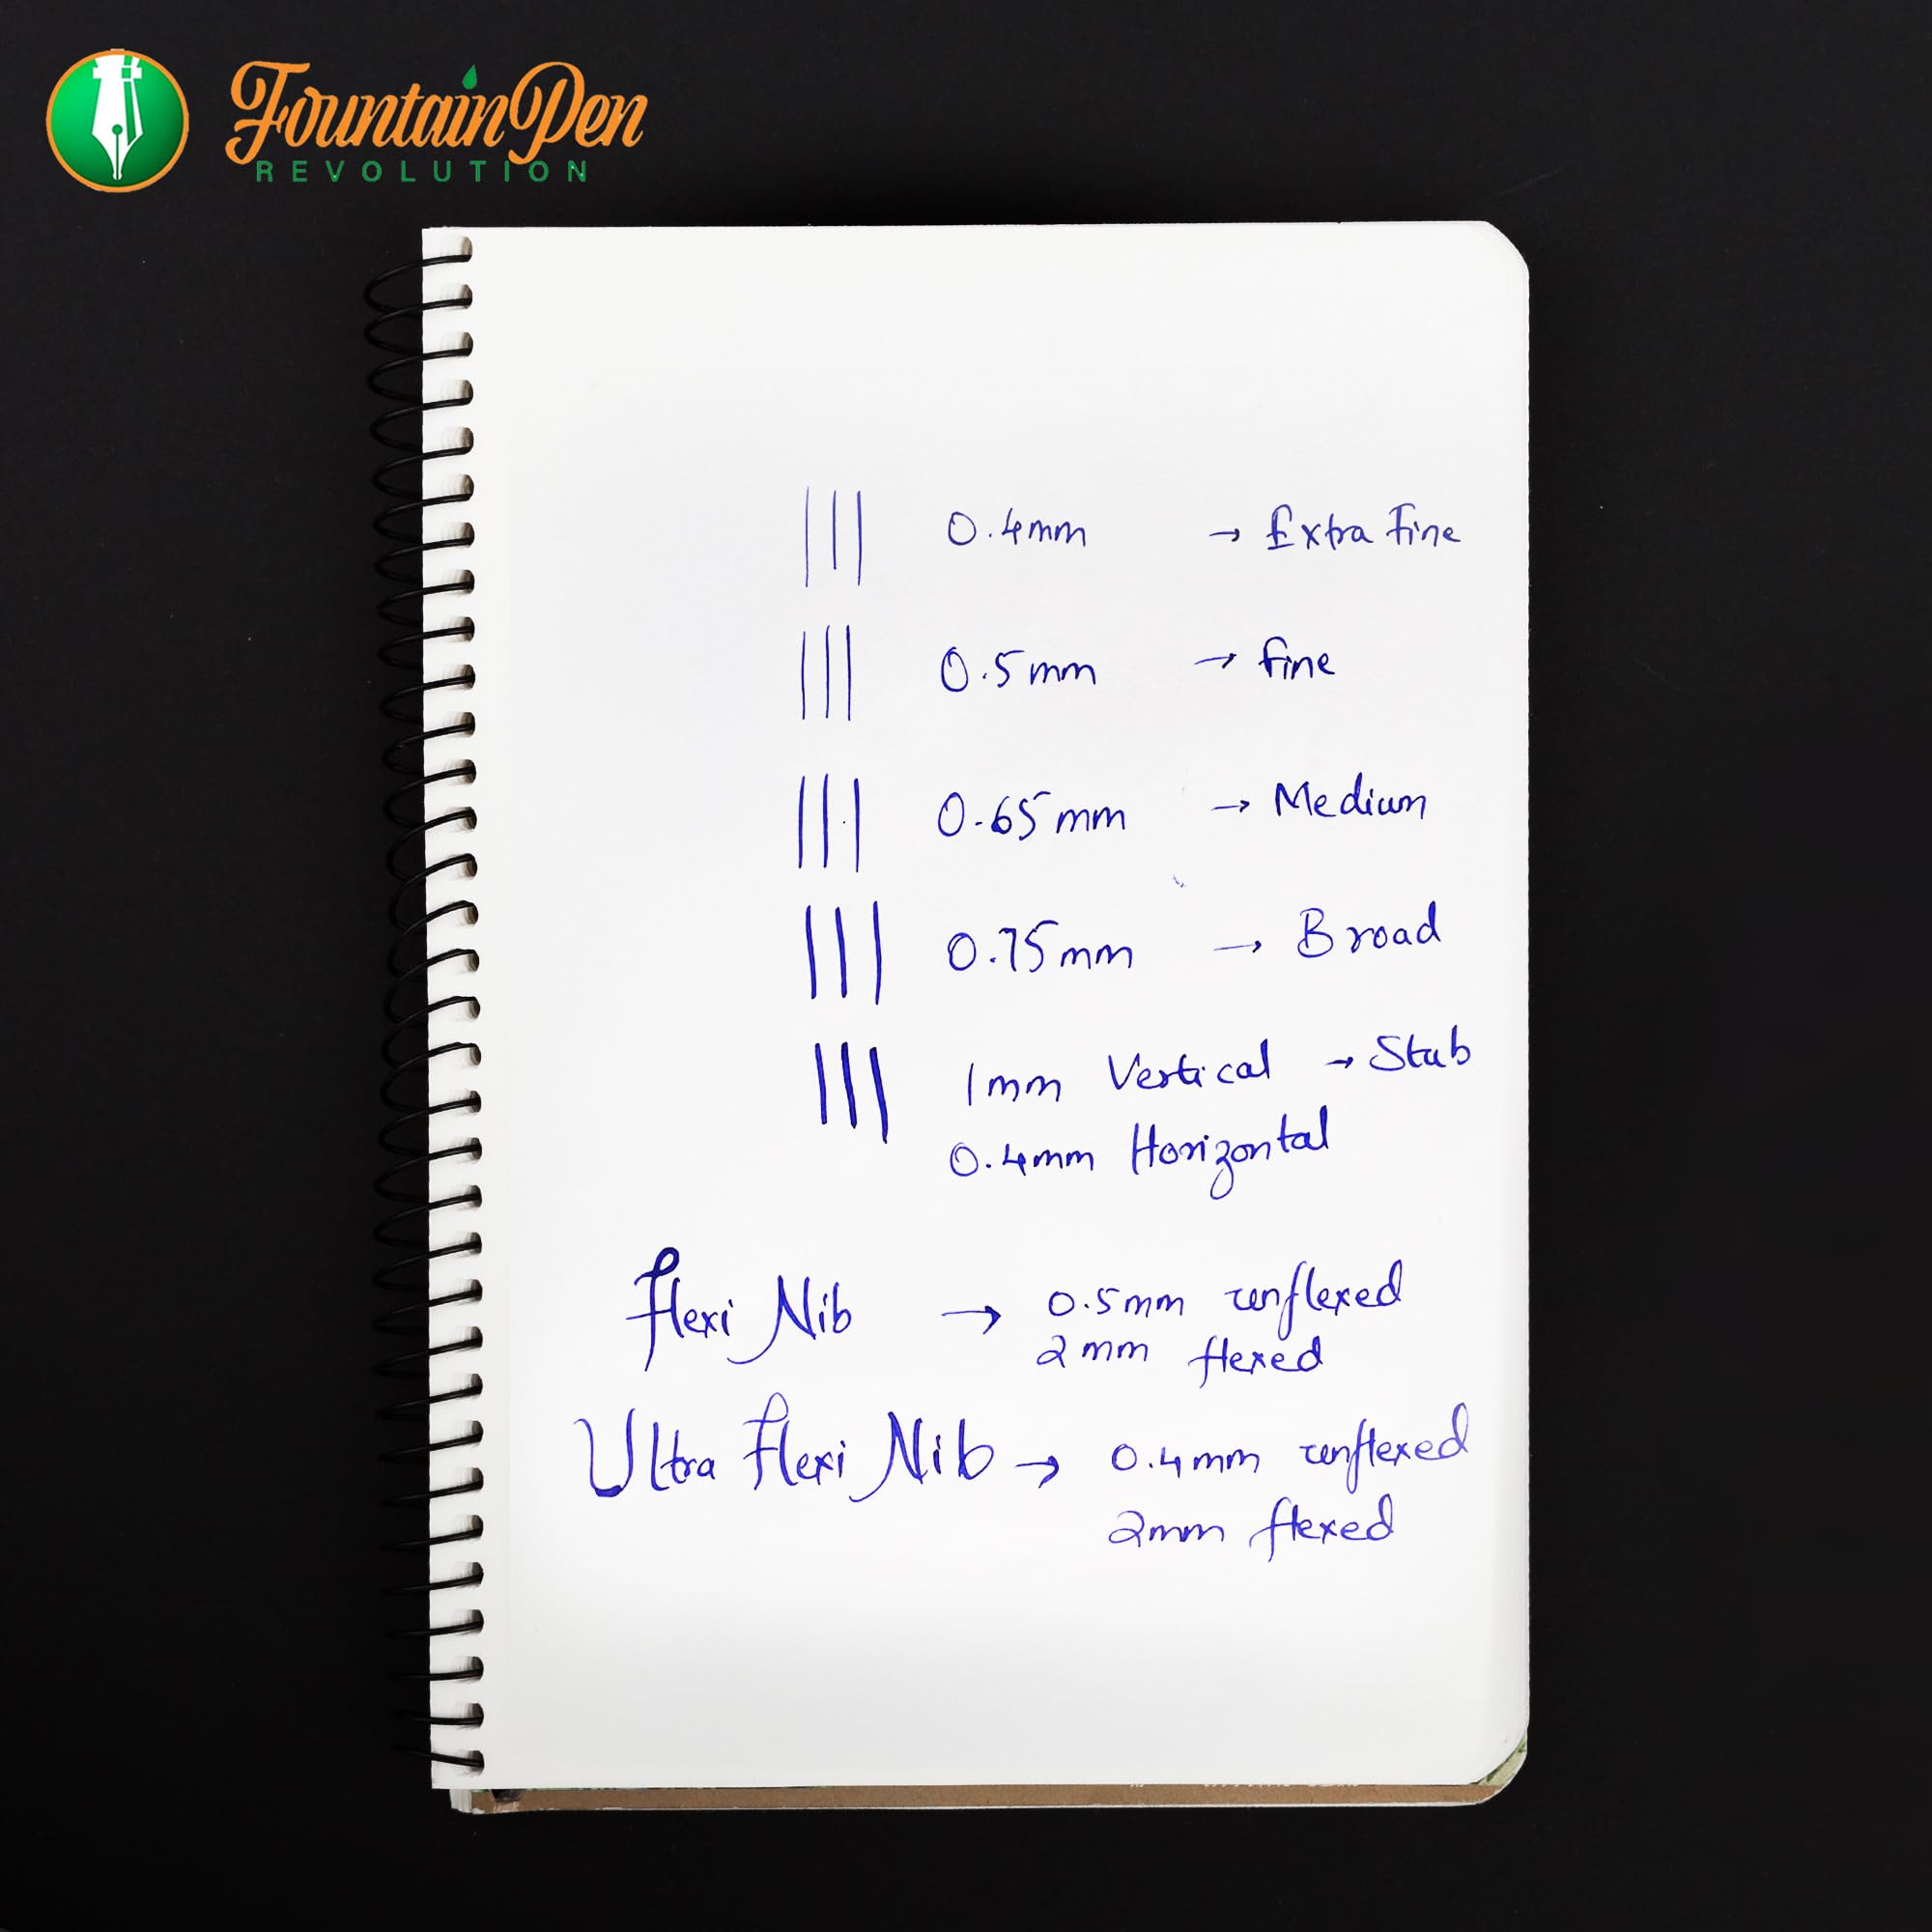 Fountain Pen
REVOLUTION
0.4mm → Extra Fine
0.5mm → fine
0.65mm → Medium
0.75mm → Broad
1mm Vertical → Stub
0.4mm Horizontal
flexi Nib → 0.5mm unflexed
2mm flexed
Ultra flexi Nib → 0.4mm unflexed
2mm flexed